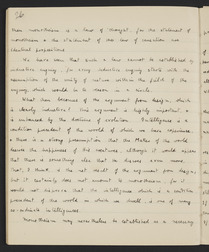 26
from monotheism is a law of thought, for the statement of
monotheism is the statement of the law of causation in
identical propositions
We have seen that such a law cannot be established by
inductive enquiry, for every inductive enquiry starts with the
assumption of the unity of nature within the field of the
enquiry, which would be to reason in a circle.
What then becomes of the argument from design, which
is clearly inductive? This argument is highly important &
is enhanced by the doctrine of evolution. Intelligence is a
antecedent of the world of which we have experience.
& there is a strong presumption that the Maker of the world
desires the happiness of his creatures, although it would appear
that there is something else that he desires even more
that, I think, is the net result of the argument from design,
but it certainly does not amount to monotheism; for it
would not disprove that the intelligence which is a
antecedent of the world in which we dwell, is one of many
intelligences.
Monotheism may nevertheless be established as a necessary